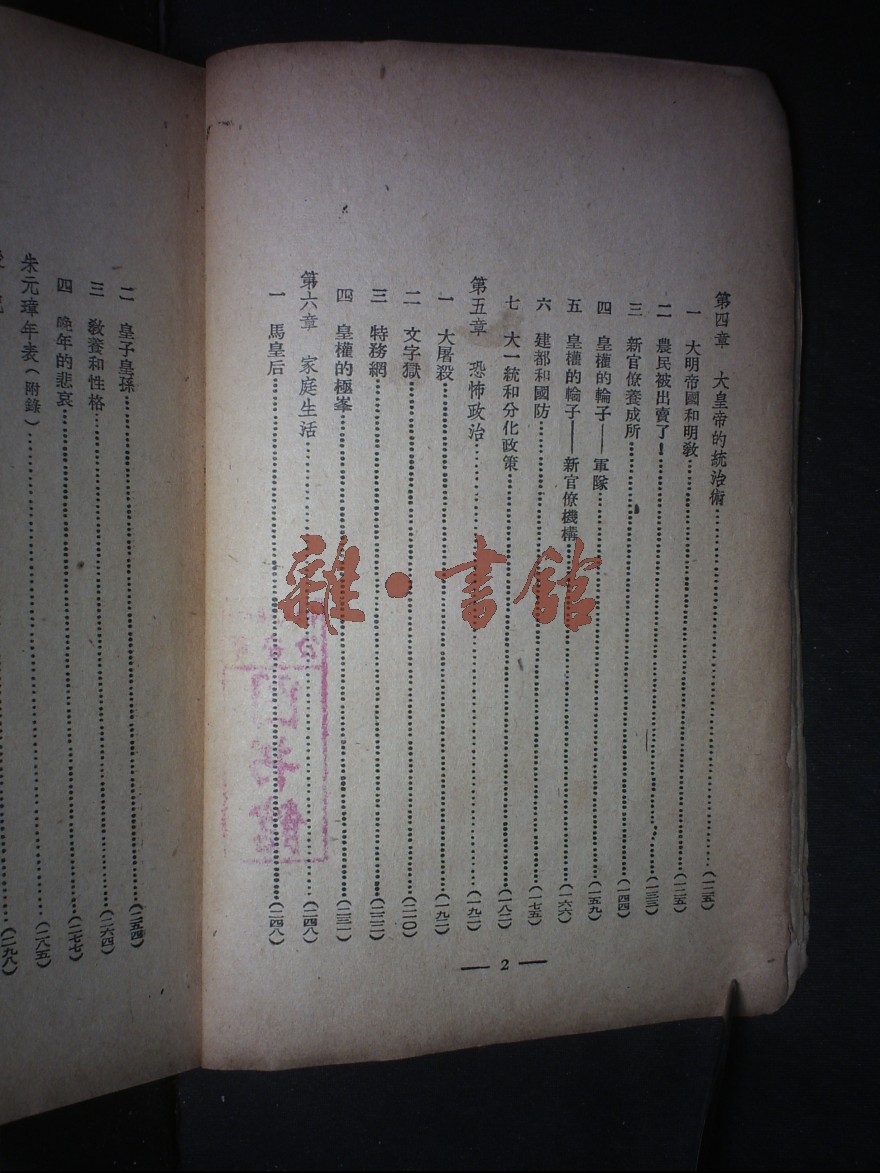 第四章　大皇帝的統治術……（一二五）
一　大明帝國和明教……（一二五）
二　農民被出賣了！……（一三三）
三　新官僚養成所……（一四四）
四　皇權的輪子——軍隊……（一五九）
五　皇權的輪子——新官僚機構……（一六六）
六　建都和國防……（一七五）
七　大一統和分化政策……（一八二）
第五章　恐怖政治……（一九二）
一　大屠殺……（一九二）
二　文字獄……（二一〇）
三　特務網……（二二二）
四　皇權的極峯……（二三一）
第六章　家庭生活……（二四八）
一　馬皇后……（二四八）
— 2 —
二　皇子皇孫……（二五四）
三　教養和性格……（二六四）
四　晚年的悲哀……（二七七）
朱元璋年表（附錄）……（二八五）
……（二九八）
雜·書館